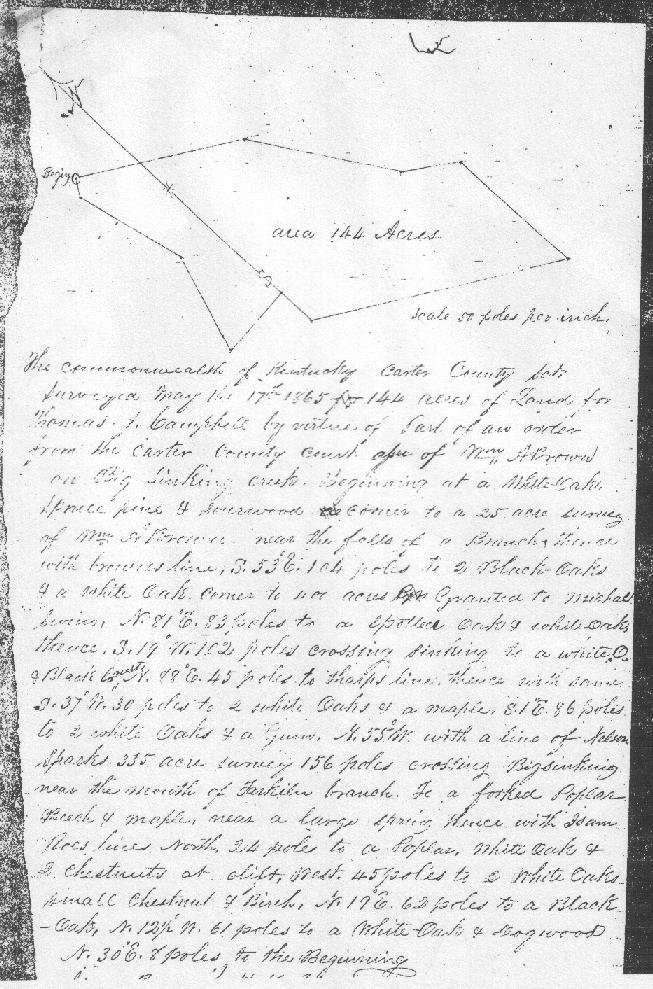 N
Beging
area 144 Acres
scale 50 poles per inch
The commonwealth of Kentucky Carter County Sct
Surveyed May the 17th 1865 144 acres of Land for
Thomas J. Camphell by virtue of Part of an order
from the Carter County court of Wm A Brown
on Big Sinking creek. Beginning at a White Oak
Spruce pine & Sourwood corner to a 25 acre survey
of Wm A Brown near the falls of a Branch, thence
with browns line, S. 53 E. 104 poles to 2 Black Oaks
& a White Oak corner to acres Granted to Michael
N. 81° E. 83 poles to a Spotted Oak & white Oak,
thence, S. 19° W. 102 poles crossing sinking to a white O
& Black N. 88° E. 45 poles to line, thence with same
S. 37° W. 30 poles to 2 white Oaks & a maple, S 1 E. 86 poles
to 2 white Oaks & a Gum, N. 55° W. with a line of Nelson
Sparks 335 acre survey 156 poles crossing Bigsinking
near the mouth of branch. To a forked Poplar
Beech & maple, near a large spring thence with Isam
lines North, 24 poles to a Poplar, White Oak &
2 Chestnuts at clift, West. 45 poles to 2 White Oaks
small Chestnut & Birch, N. 19° E. 62 poles to a Black
-Oak, N. 12½ W. 61 poles to a White Oak & Dogwood
N. 30° E. 8 poles, to the Beginning